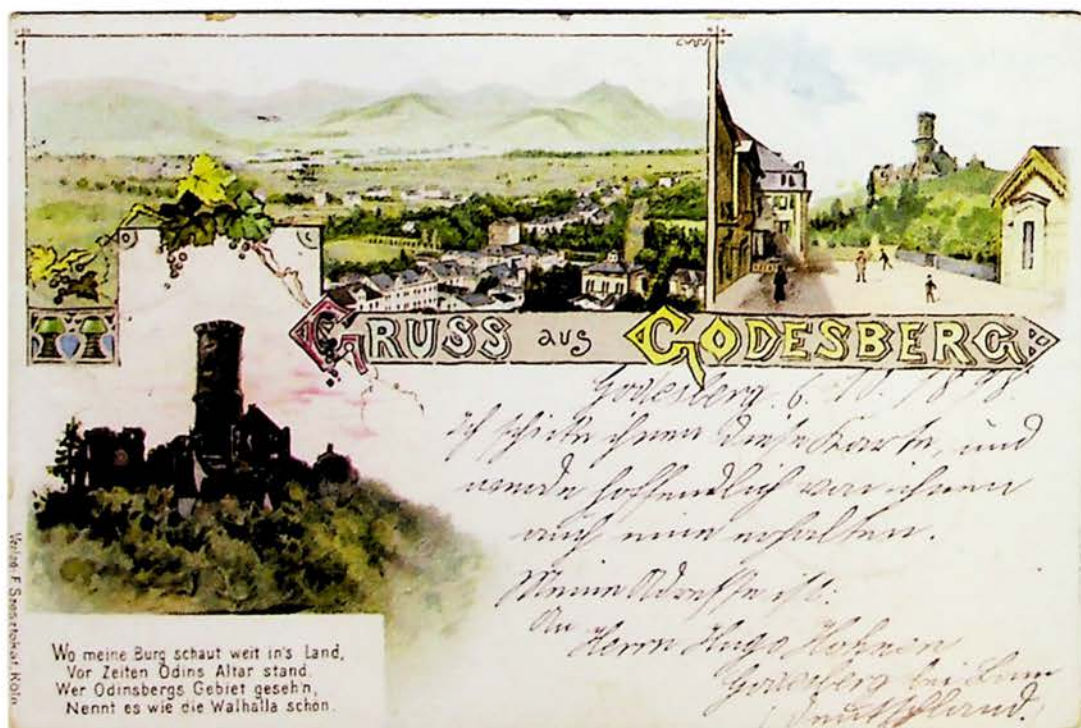 GRUSS aus GODESBERG
Godesberg. 6. 1898.
Ich schicke ihnen diese Karte, und
werde hoffendlich von ihnen
auch eine erhalten.
Meine Adresse ist:
An
Herrn Hugo
Godesberg bei Bonn
Deutschland
Wo meine Burg schaut weit in's Land,
Vor Zeiten Odins Altar stand.
Wer Odinsbergs Gebiet geseh'n,
Nennt es wie die Walhalla schön.
Verlag. F. Köln